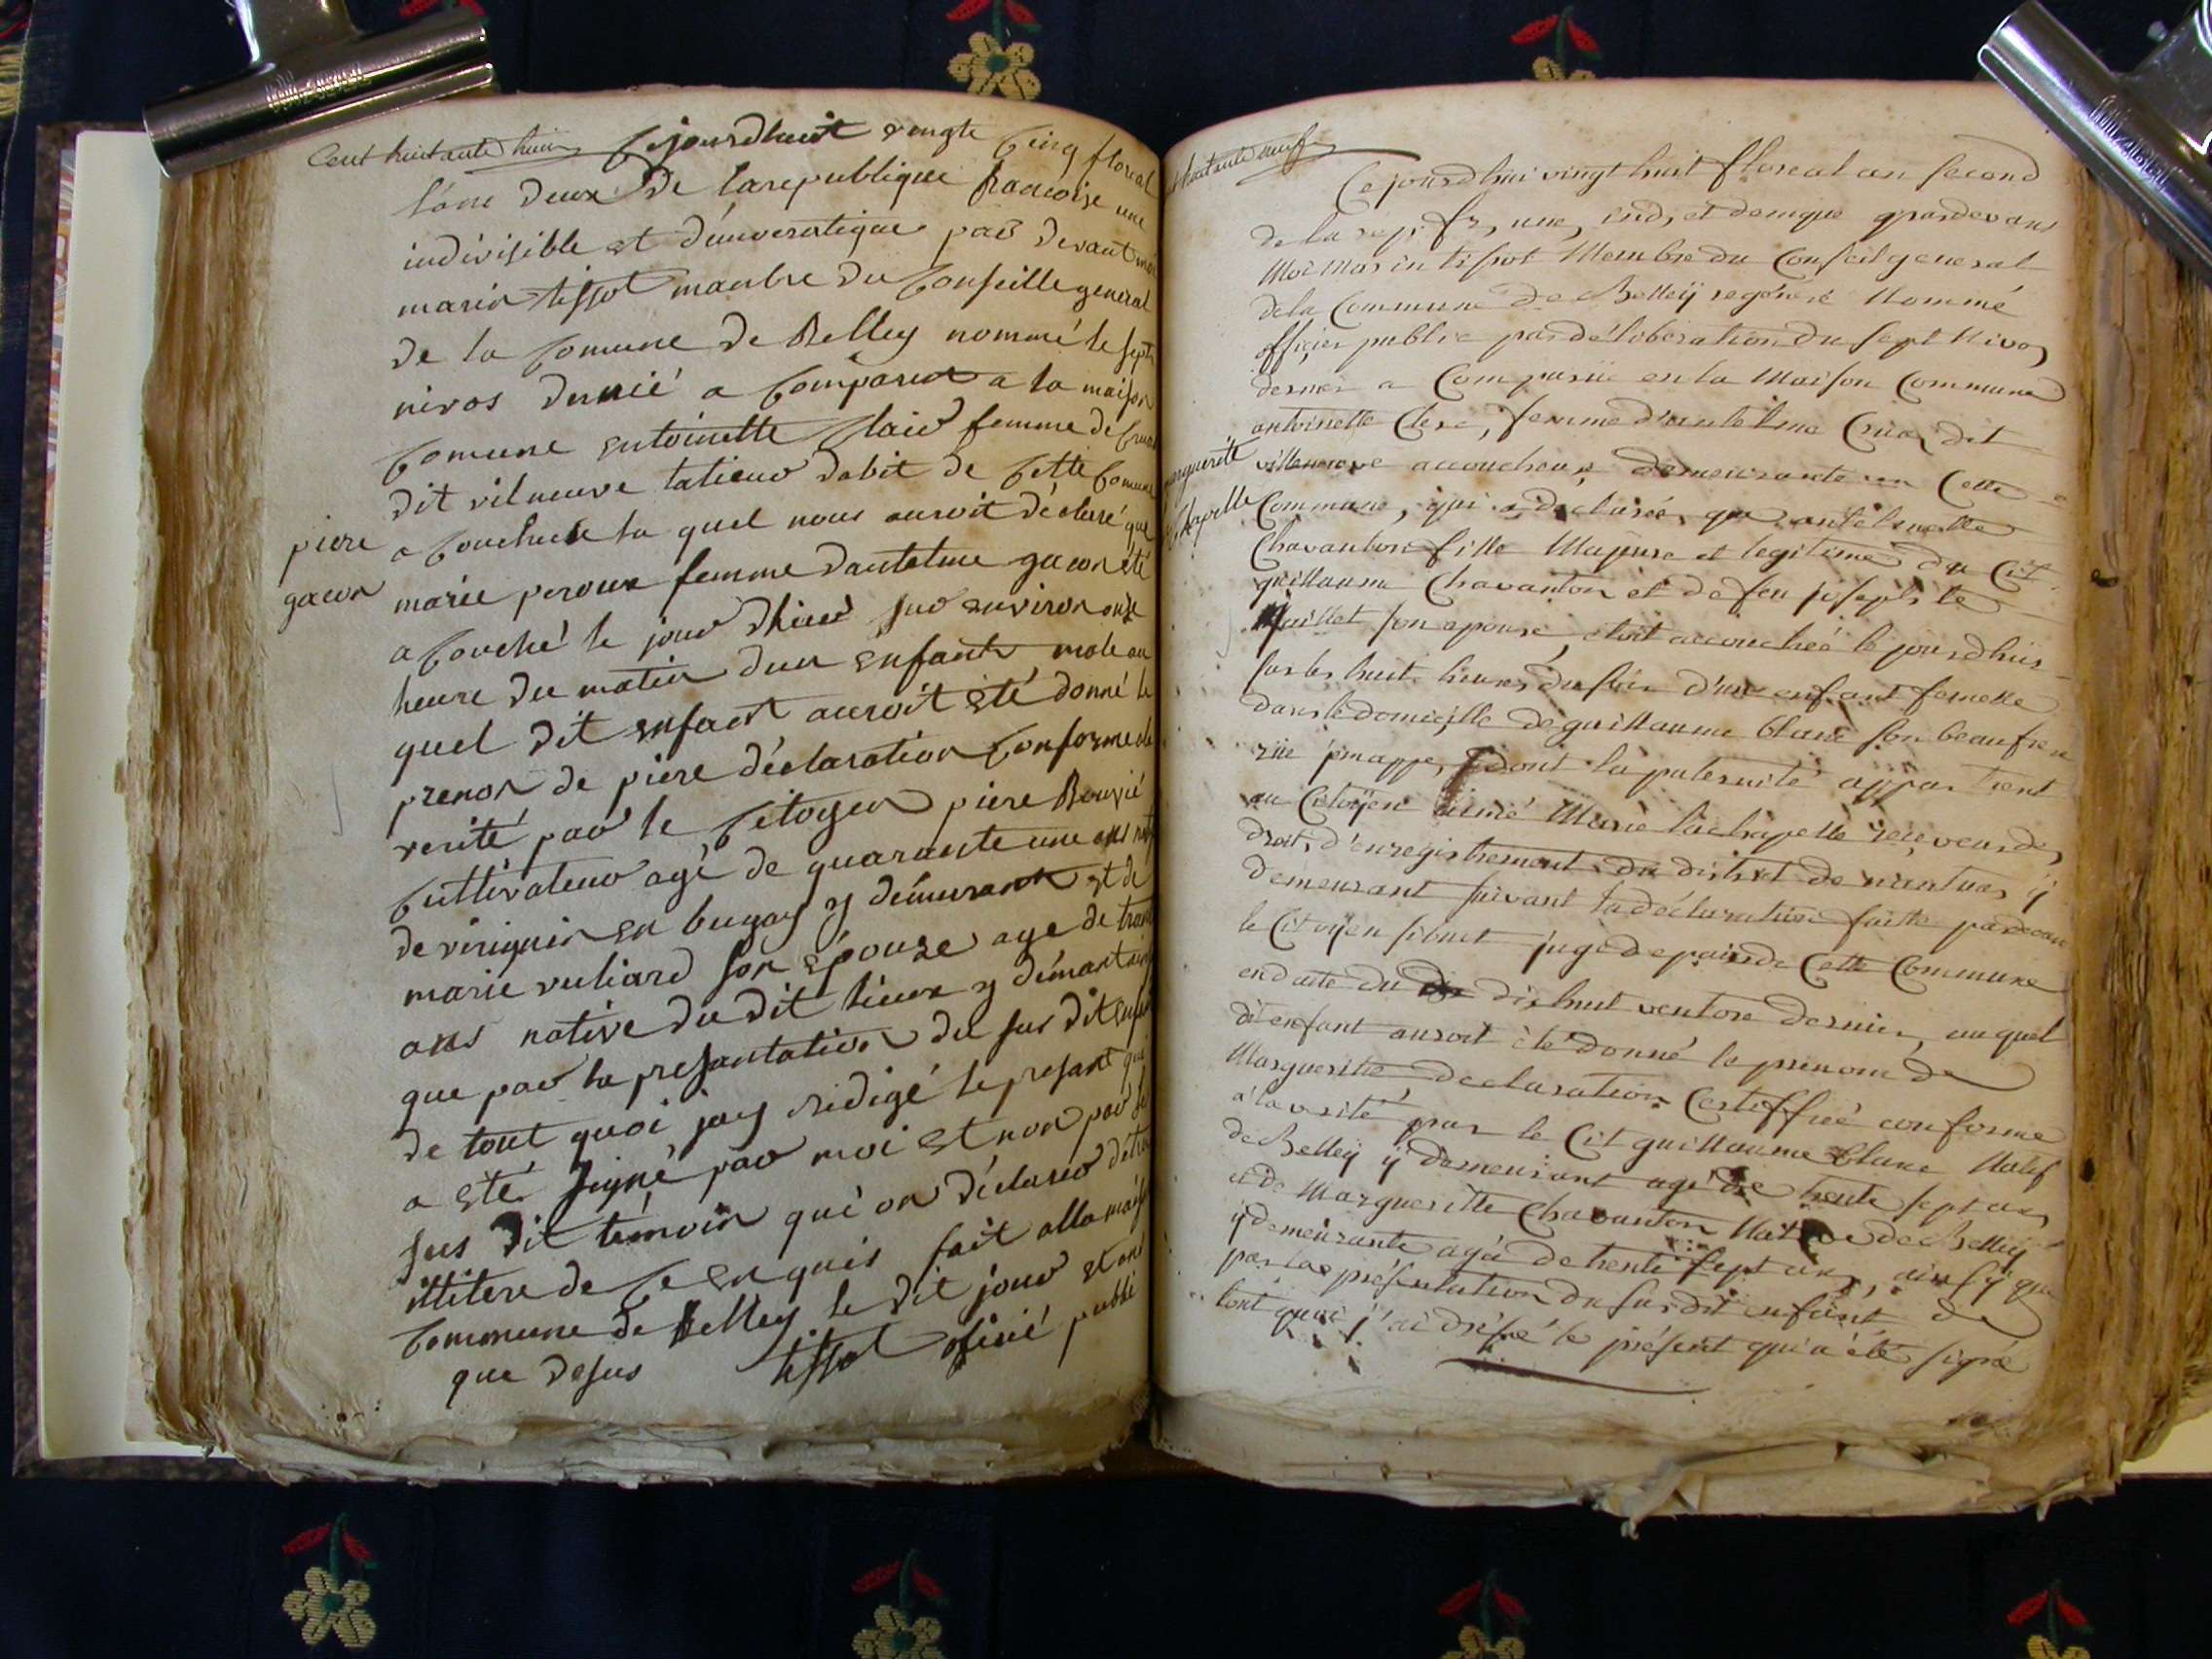 Cent huitante huit
Cejourdhuit vingte cinq floreal
l'ans deux de la republique francoise une
indivisible et démocratique par devant moi
marin tissot manbre du Conseille general
de la Comune de Belley nommé le sept
nivos dernié a Comparue a la maison
Comune entoinette Clair femme de
dit vilneuve tatieur dabit de cette Comune
a Coucheuse la quel nous auroit déclaré que
marie peroux femme dantelme gacon été
a Couché le jour dhier sur environ onze
heure du matin dun enfant male au
quel dit enfant auroit été donné le
prenon de piere déclaration Conforme ale
verité par le Citoyen piere
Cultivateur agé de quarante une ans natif
de virignin en bugay y démurant et de
marie vuliard son épouze age de trante
ans native du dit lieux y démurant
que par la presantation du sus dit enfant
de tout quoi jay rédigé le presant qui
a été signé par moi et non par les
sus dit témoin qui on déclaré détre
illitere de Ce enquis fait alla maison
Commune de Belley le dit jour et ans
que desus tissot ofisié publi
piere
gacon
huitante neuf
Cejourdhui vingt huit floreal an second
de la rep. fr, une, ind, et démque pardevant
Moi Marin tissot Membre du Conseil general
de la Commune de Belley regénéré Nommé
officier public par déliberation du sept Nivos
dernier a Comparüe en la Maison Commune
antoinette Clerc, femme d'antelme Cruaz dit
villeneuve accoucheuse demeurante en Cette
Commune, qui a declarée, que antelmette
Chavanton fille Majeure et legitime du Cit.
guillaume Chavanton et de feu joseph te
Maillet son epouse, étoit accouchée le jour d'hier
sur les huit heures du soir d'un enfant femelle
dans le domicille de guillaume blanc son beaufrere
rüe , dont la paternité appartient
au Citoÿen aimé Marie lachapelle receveur des
droits d'enregistrement du district de nantuas ÿ
demeurant suivant la déclaration faitte pardevant
le Citoÿen sibuet juge de paix de Cette Commune
en datte du dishuit ventose dernier, auquel
dit enfant auroit été donné le prenom de
Marguerite, declaration Certiffiée conforme
à la verité par le Cit guillaume blanc Natif
de Belleÿ ÿ demeurant agé de trente sept ans
et de Marguerite Chavanton Native de Belleÿ
ÿ demeurante agée de trente sept ans, ainsÿ que
par la présentation du susdit enfant de
tout quoi j'ai dréssé le présent qui a été signé
marguerite
lachapelle